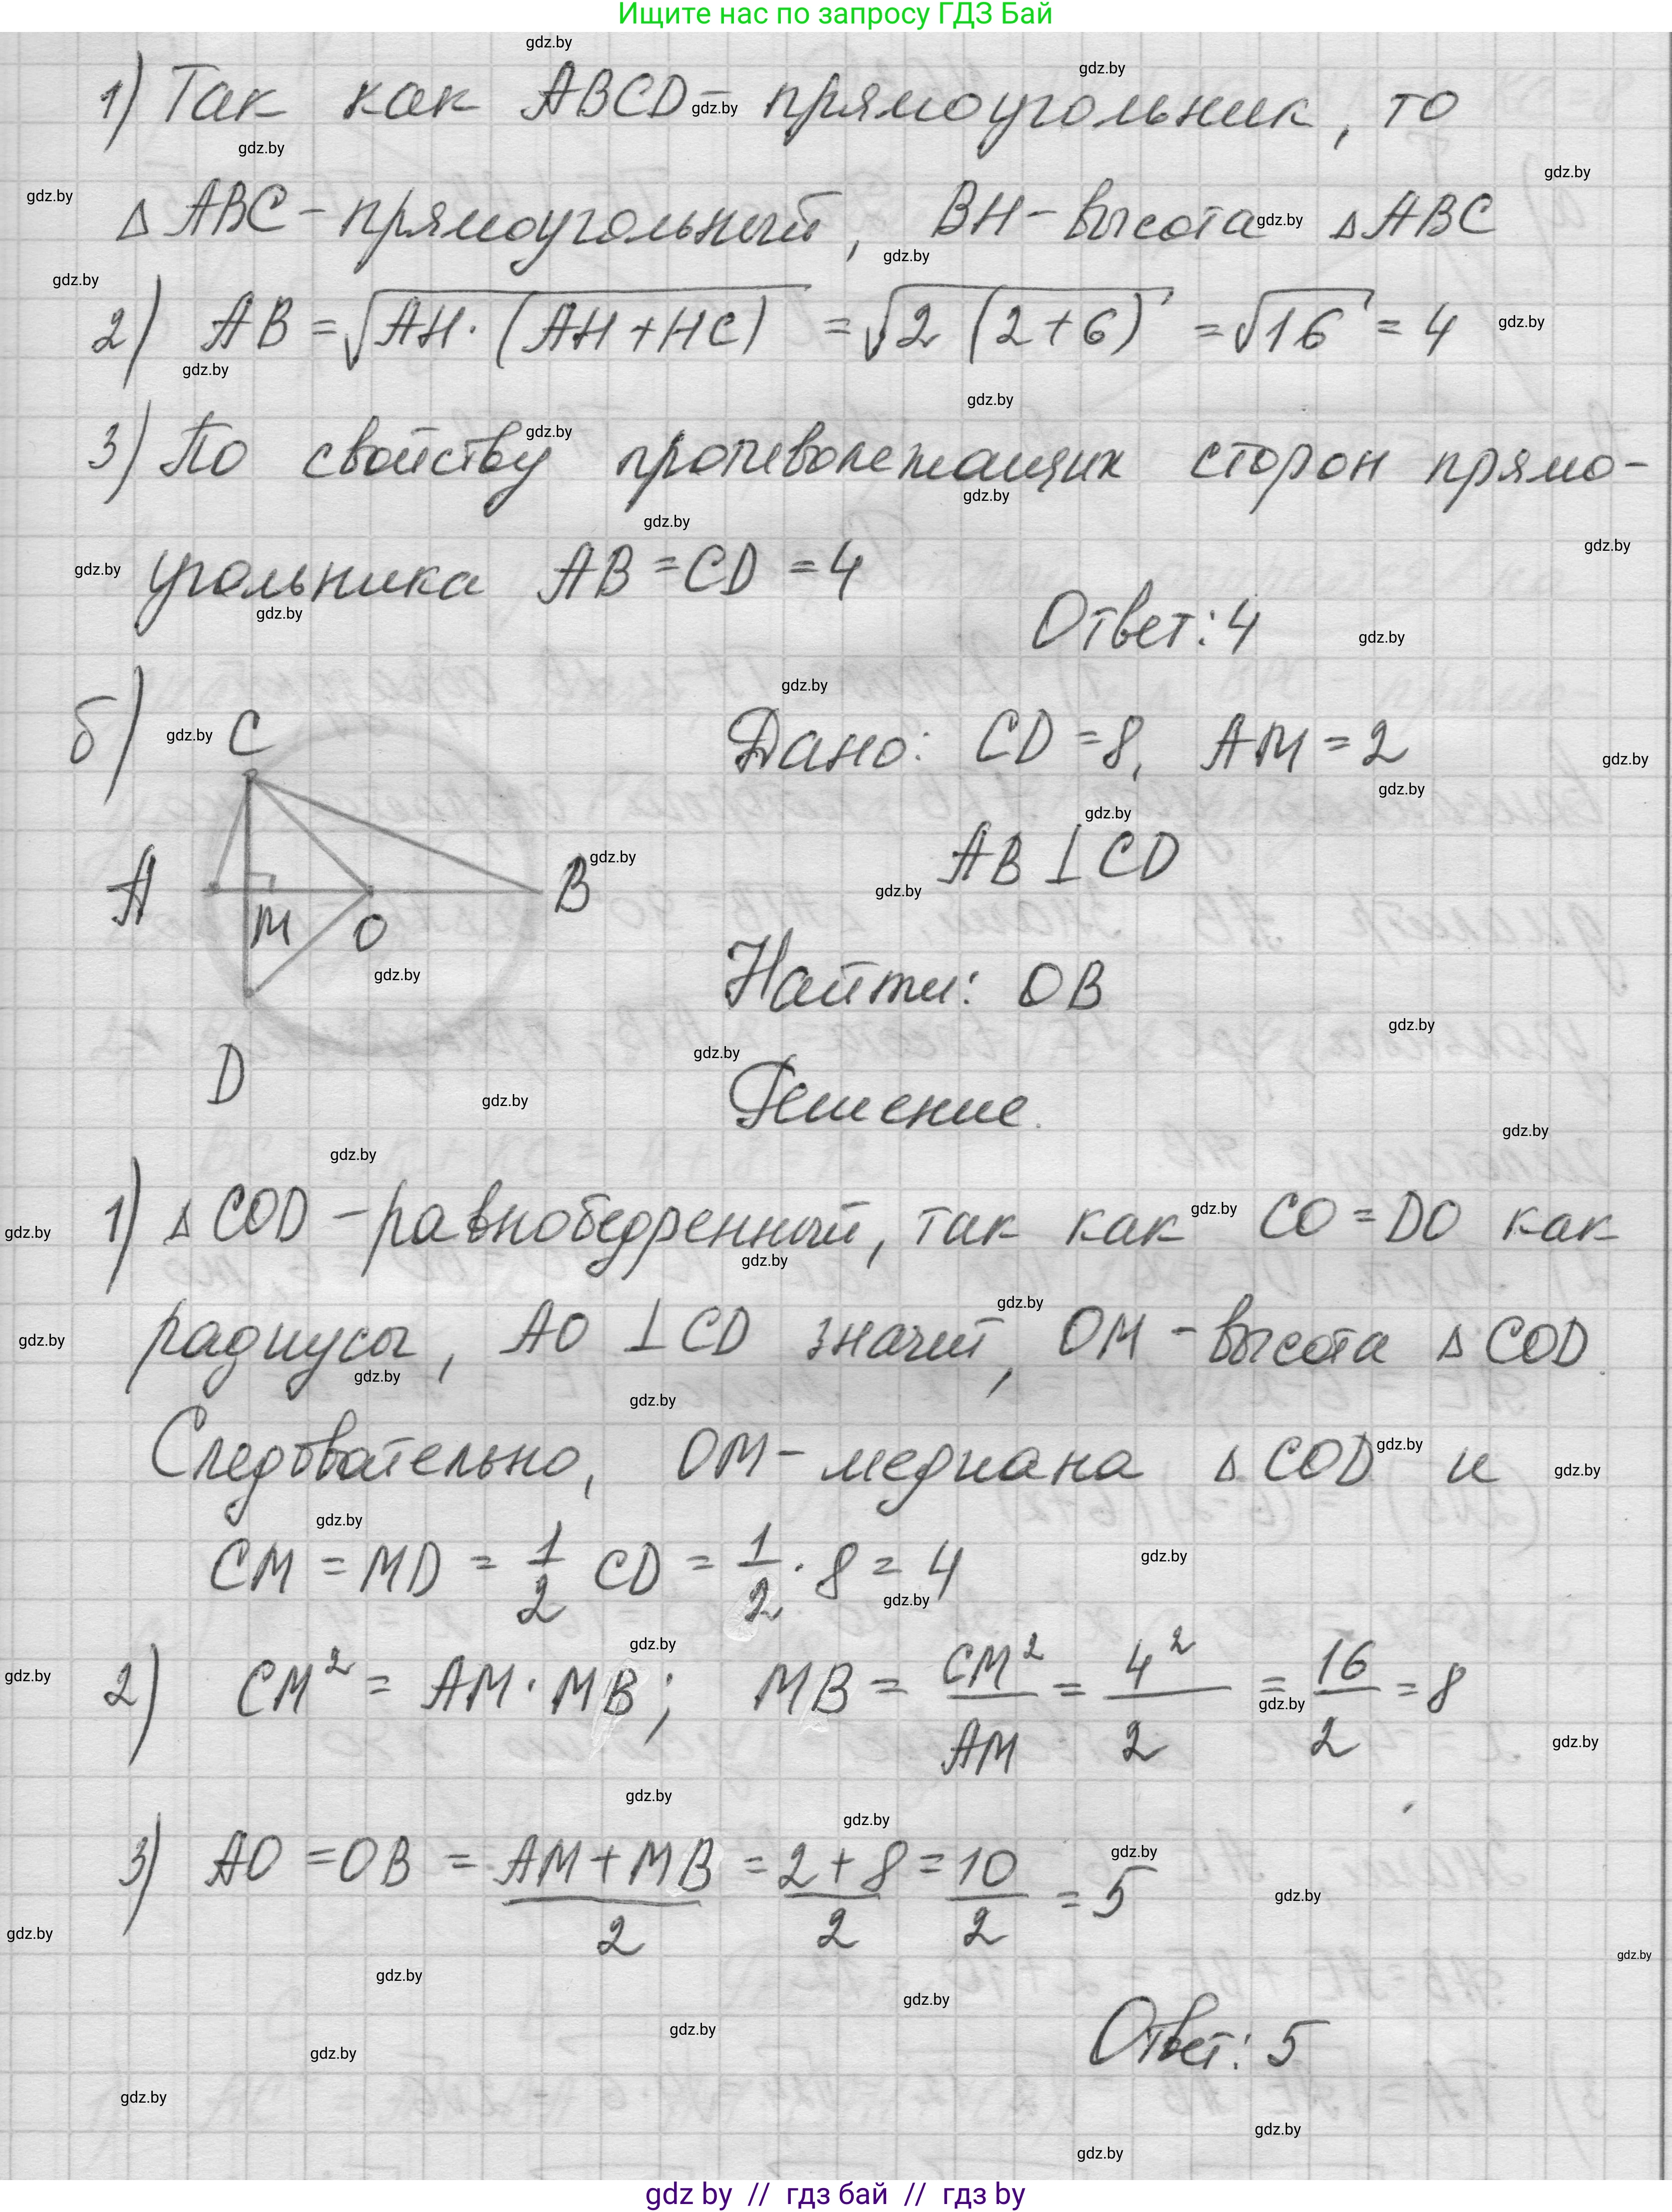 Ищите нас по запросу ГДЗ Бай
1) Так как ABCD - прямоугольник, то
△ ABC - прямоугольный, BH - высота △ ABC
2) AB = √(AH · (AH + HC)) = √(2 (2+6)) = √16 = 4
3) По свойству противолежащих сторон прямо-
угольника AB = CD = 4
Ответ: 4
б)
C
A
M
O
B
D
Дано: CD = 8, AM = 2
AB ⊥ CD
Найти: OB
Решение.
1) △ COD - равнобедренный, так как CO = DO как
радиусы, AO ⊥ CD значит, OM - высота △ COD.
Следовательно, OM - медиана △ COD и
CM = MD = 1/2 CD = 1/2 · 8 = 4
2) CM² = AM · MB; MB = CM²/AM = 4²/2 = 16/2 = 8
3) AO = OB = (AM + MB)/2 = (2 + 8)/2 = 10/2 = 5
Ответ: 5
gdz by // гдз бай // гдз by